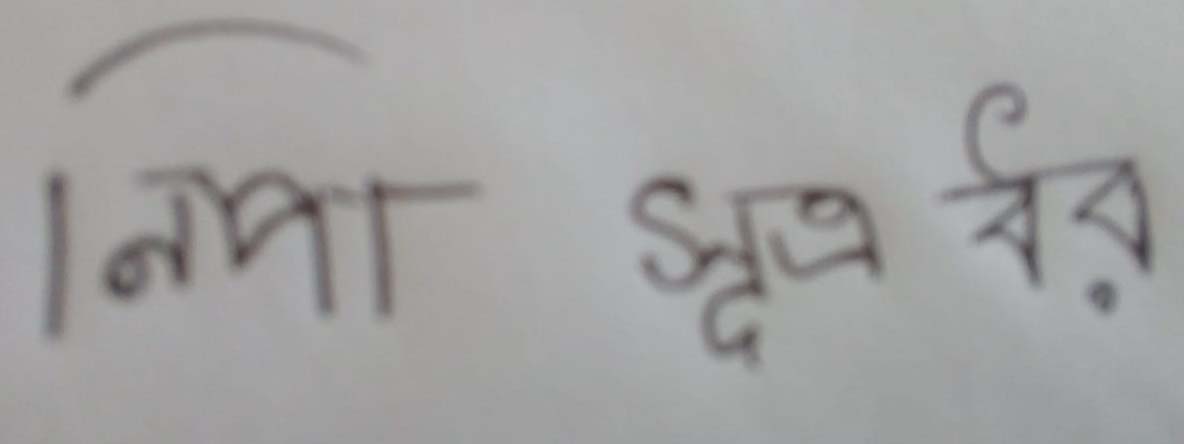 নিপা সূত্র ধর